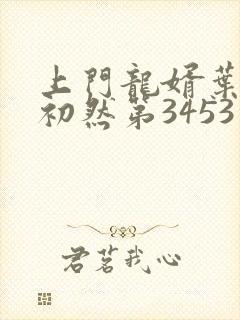 上門龍婿葉
初然第3453
君茗我心